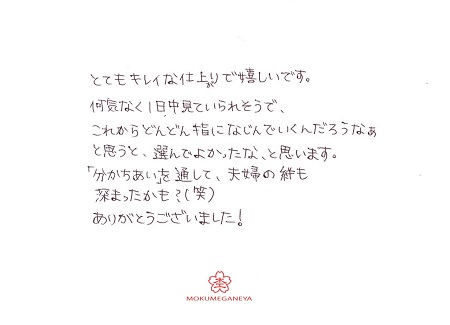 とてもキレイな仕上がりで嬉しいです。
何気なく1日中見ていられそうで、
これからどんどん指になじんでいくんだろうなぁ
と思うと、選んでよかったな、と思います。
「分かちあい」を通して、夫婦の絆も
深まったかも?(笑)
ありがとうございました!
MOKUMEGANEYA